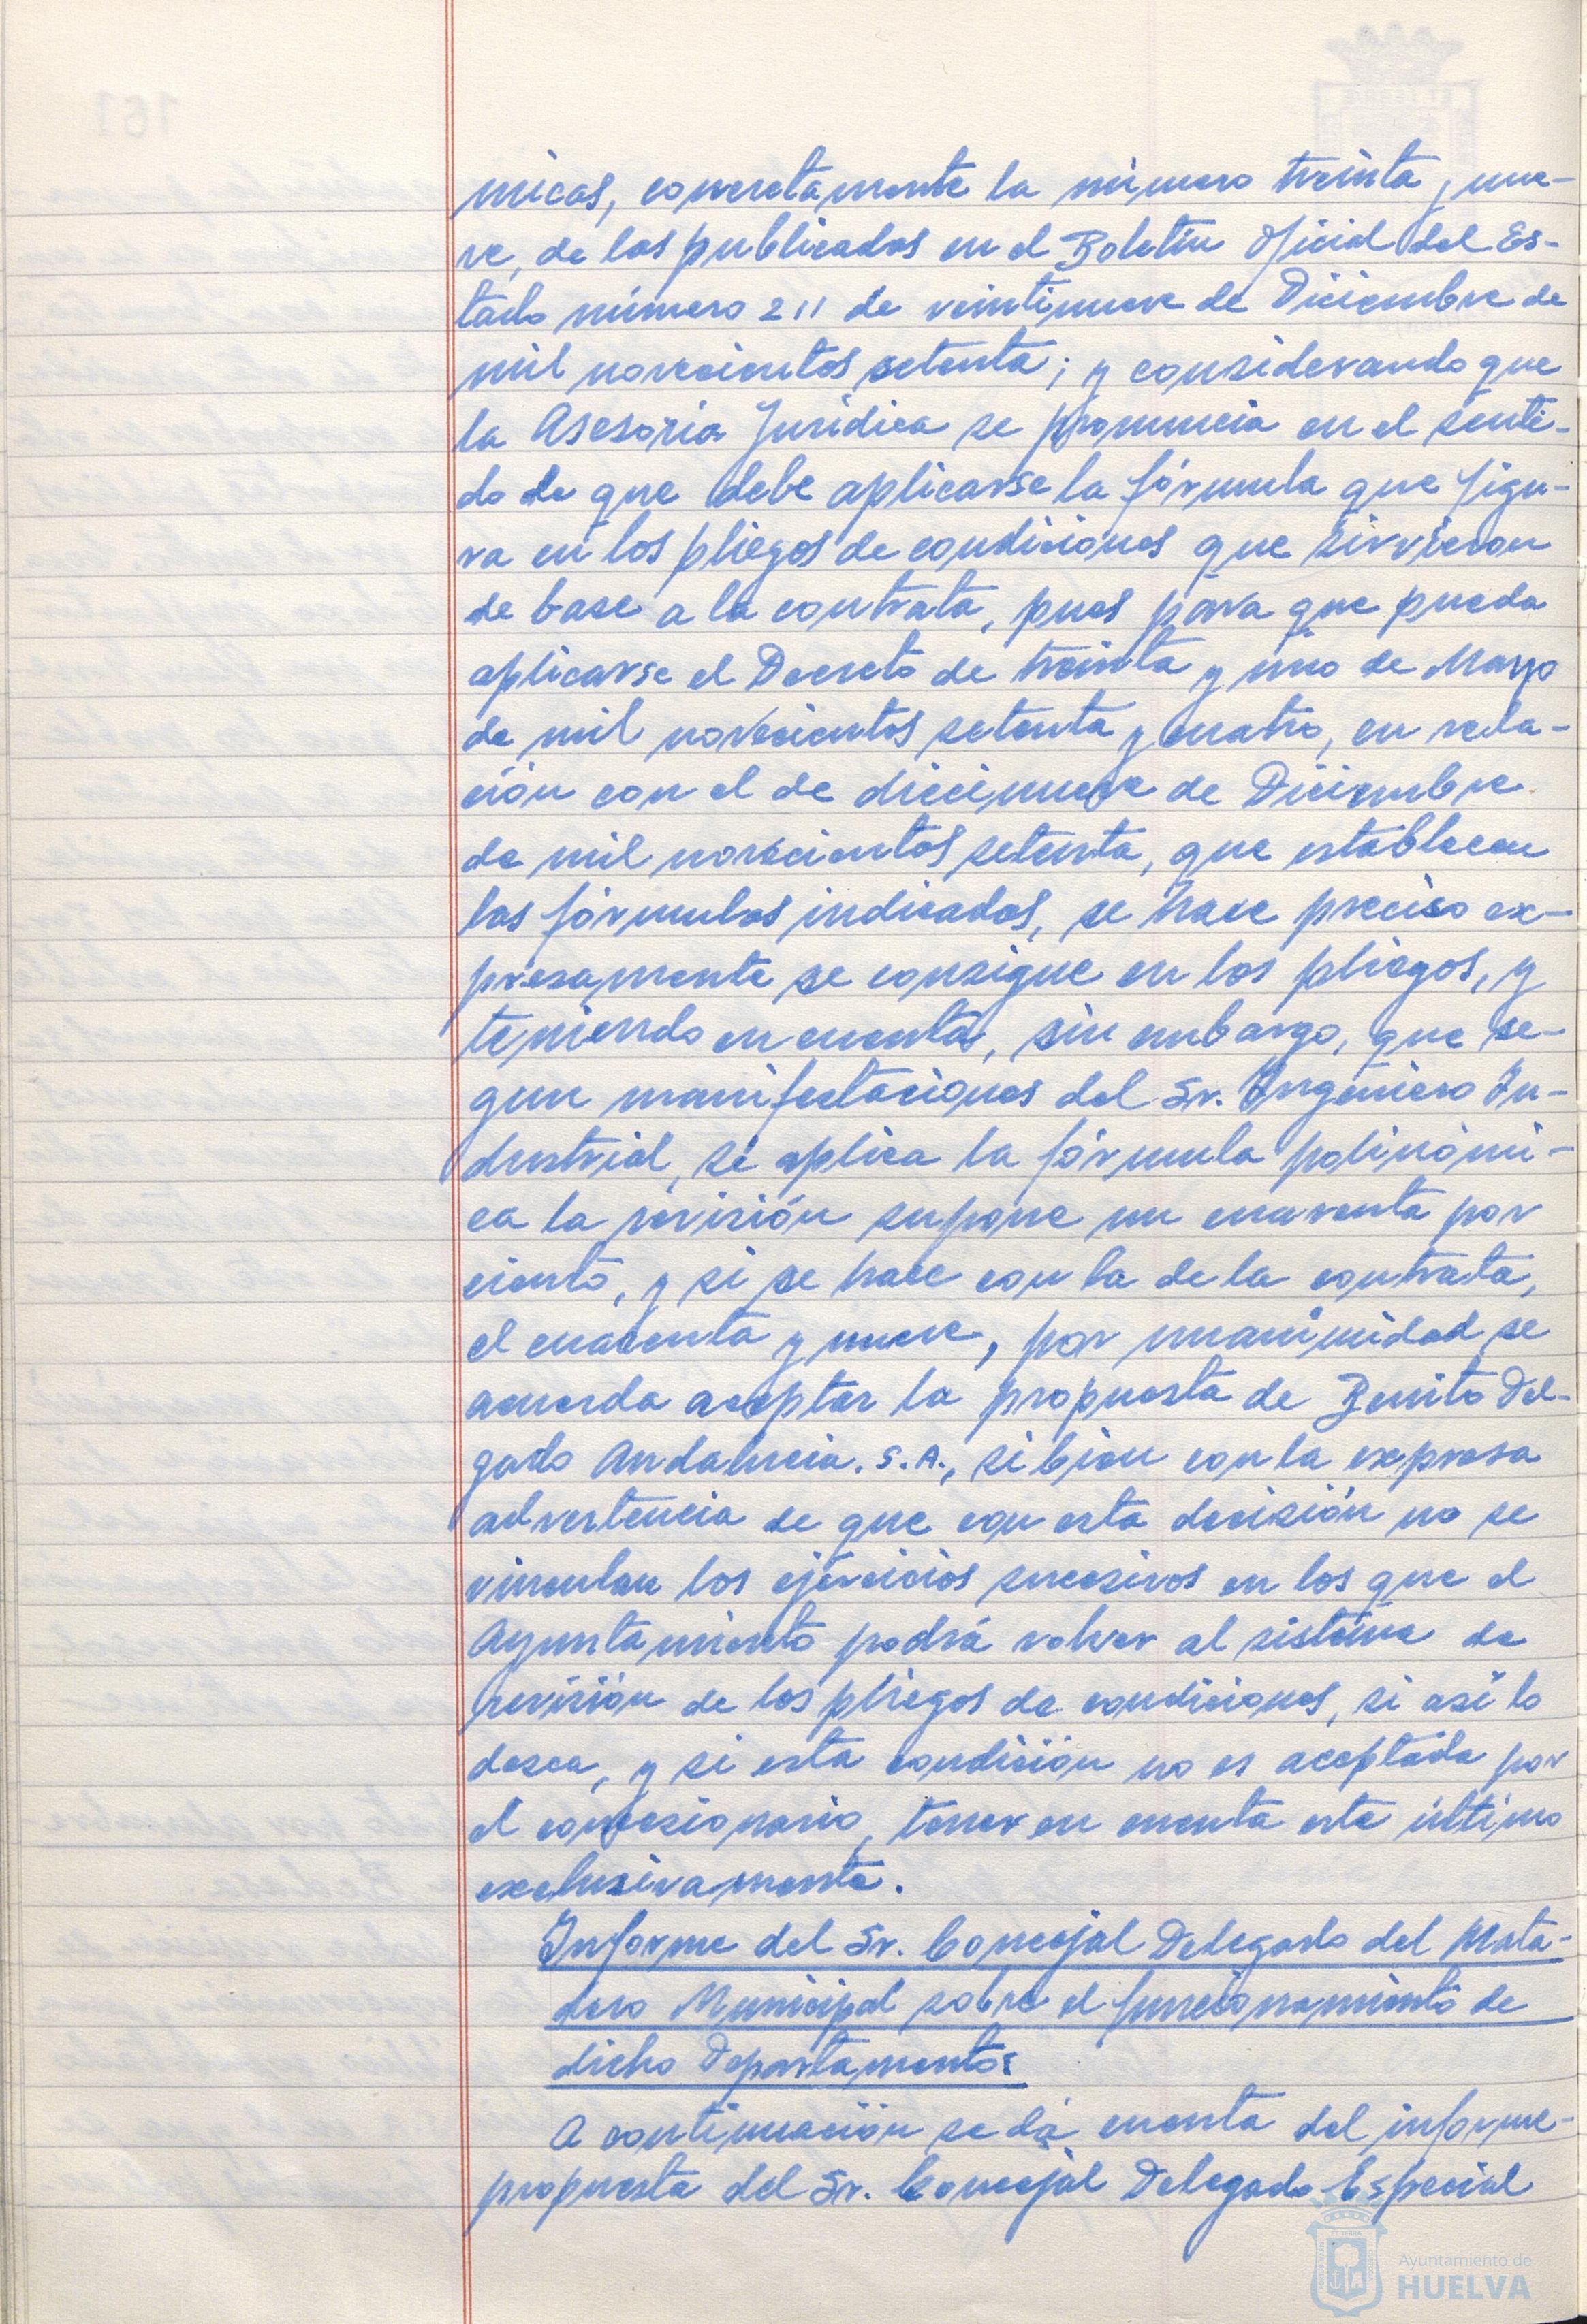 micas, concretamente la número treinta y nue-
ve, de las publicadas en el Boletín Oficial del Es-
tado número 211 de veintinueve de Diciembre de
mil novecientos setenta; y considerando que
la Asesoria Juridica se pronuncia en el senti-
do de que debe aplicarse la fórmula que figu-
ra en los pliegos de condiciones que sirvieron
de base a la contrata, pues para que pueda
aplicarse el Decreto de treinta y uno de Mayo
de mil novecientos setenta y cuatro, en rela-
ción con el de diecinueve de Diciembre
de mil novecientos setenta, que establecen
las fórmulas indicadas, se hace preciso ex-
presamente se consigne en los pliegos, y
teniendo en cuenta, sin embargo, que se-
gun manifestaciones del Sr. Ingeniero In-
dustrial, si aplica la fórmula polinómi-
ca la revisión supone un cuarenta por
ciento, y si se hace con la de la contrata,
el cuarenta y nueve, por unanimidad se
acuerda aceptar la propuesta de Benito Del-
gado Andalucia. S.A., si bien con la expresa
advertencia de que con esta decisión no se
vinculan los ejercicios sucesivos en los que el
Ayuntamiento podrá volver al sistema de
revisión de los pliegos de condiciones, si así lo
desea, y si esta condición no es aceptada por
el concesionario, tener en cuenta este último
exclusivamente.
Informe del Sr. Concejal Delegado del Mata-
dero Municipal sobre el funcionamiento de
dicho Departamentos
A continuación se dá cuenta del informe-
propuesta del Sr. Concejal Delegado Especial
Ayuntamiento de
HUELVA